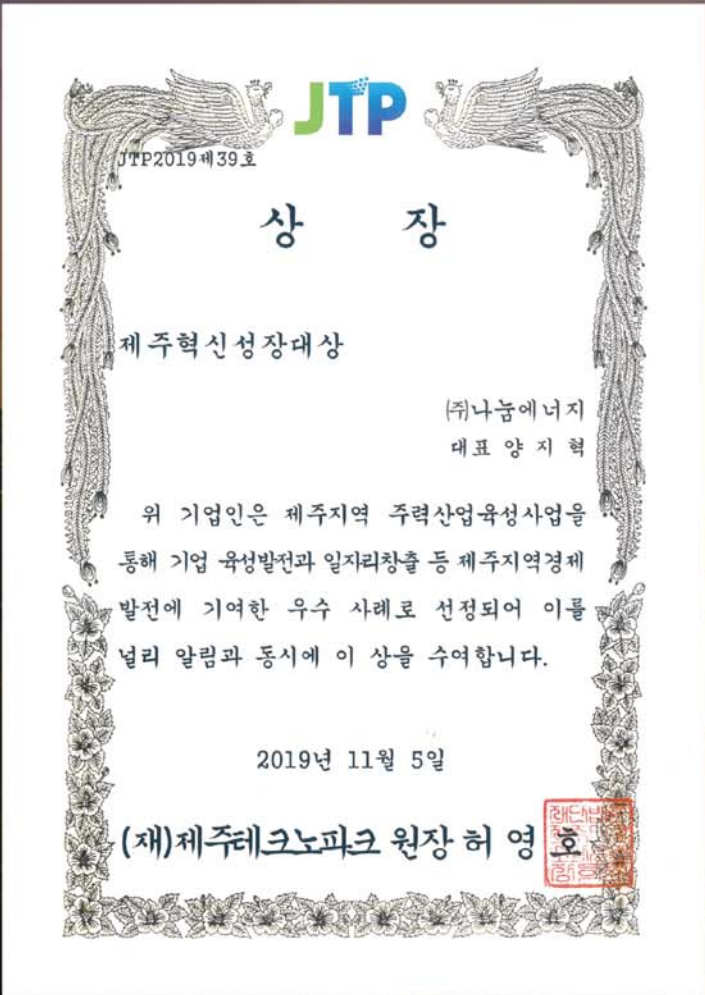 JTP
JTP2019제39호
상 장
제주혁신성장대상
㈜나눔에너지
대표 양 지 혁
위 기업인은 제주지역 주력산업육성사업을
통해 기업 육성발전과 일자리창출 등 제주지역경제
발전에 기여한 우수 사례로 선정되어 이를
널리 알림과 동시에 이 상을 수여합니다.
2019년 11월 5일
(재)제주테크노파크 원장 허 영 호